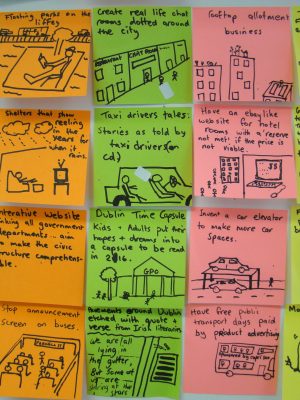 Floating parks on the
liffey
Create real life chat
rooms dotted around
the city
Restaurant
CHAT ROOM
Rooftop allotment
business
Shelters that show
reeling in
the years for
when it
rains.
Taxi drivers tales:
Stories as told by
taxi drivers (on
cd)
Have an ebay like
website for hotel
rooms with a 'reserve
not met' if the price is
not viable.
Interative website
linking all government
departments .. aim
to make the civic
structure comprehens-
able.
Dublin Time Capsule
Kids + Adults put their
hopes + dreams into
a capsule to be read
in 2016.
GPO
Invent a car elevator
to make more car
spaces.
Stop announcement
screen on buses.
Pavements around Dublin
etched with quote +
verse from Irish literaries
we are all
lying in
the gutter,
But some of
us are
staring at the
stars
Have free public
transport days paid
by product advertising